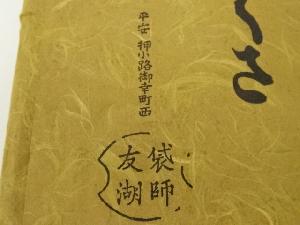 くさ
平安 押小路御幸町西
袋師
友湖